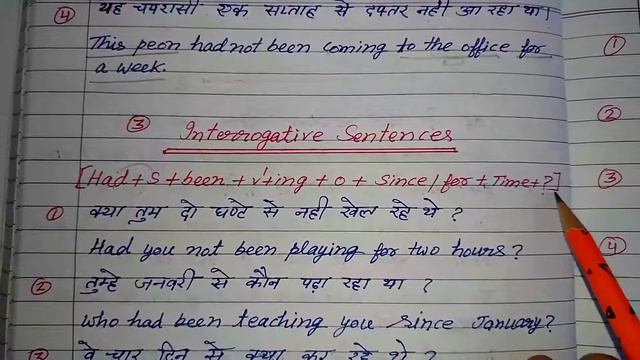 ④ यह चपरासी एक सप्ताह से दफ्तर नहीं आ रहा था।
This peon had not been coming to the office for
a week.
①
②
③ Interrogative Sentences
[Had + S + been + v¹+ing + o + Since / for + Time + ?]
③
① क्या तुम दो घण्टे से नही खेल रहे थे ?
Had you not been playing for two hours?
④
② तुम्हे जनवरी से कौन पढ़ा रहा था ?
Who had been teaching you since January?
③ वे चार दिन से क्या कर रहे थे ?